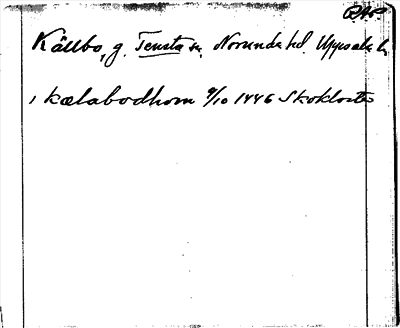 RAP
Källbo, g. Tensta sn. Norunda hd. Uppsala l.
, kælabodhom 9/10 1446 Skokloster